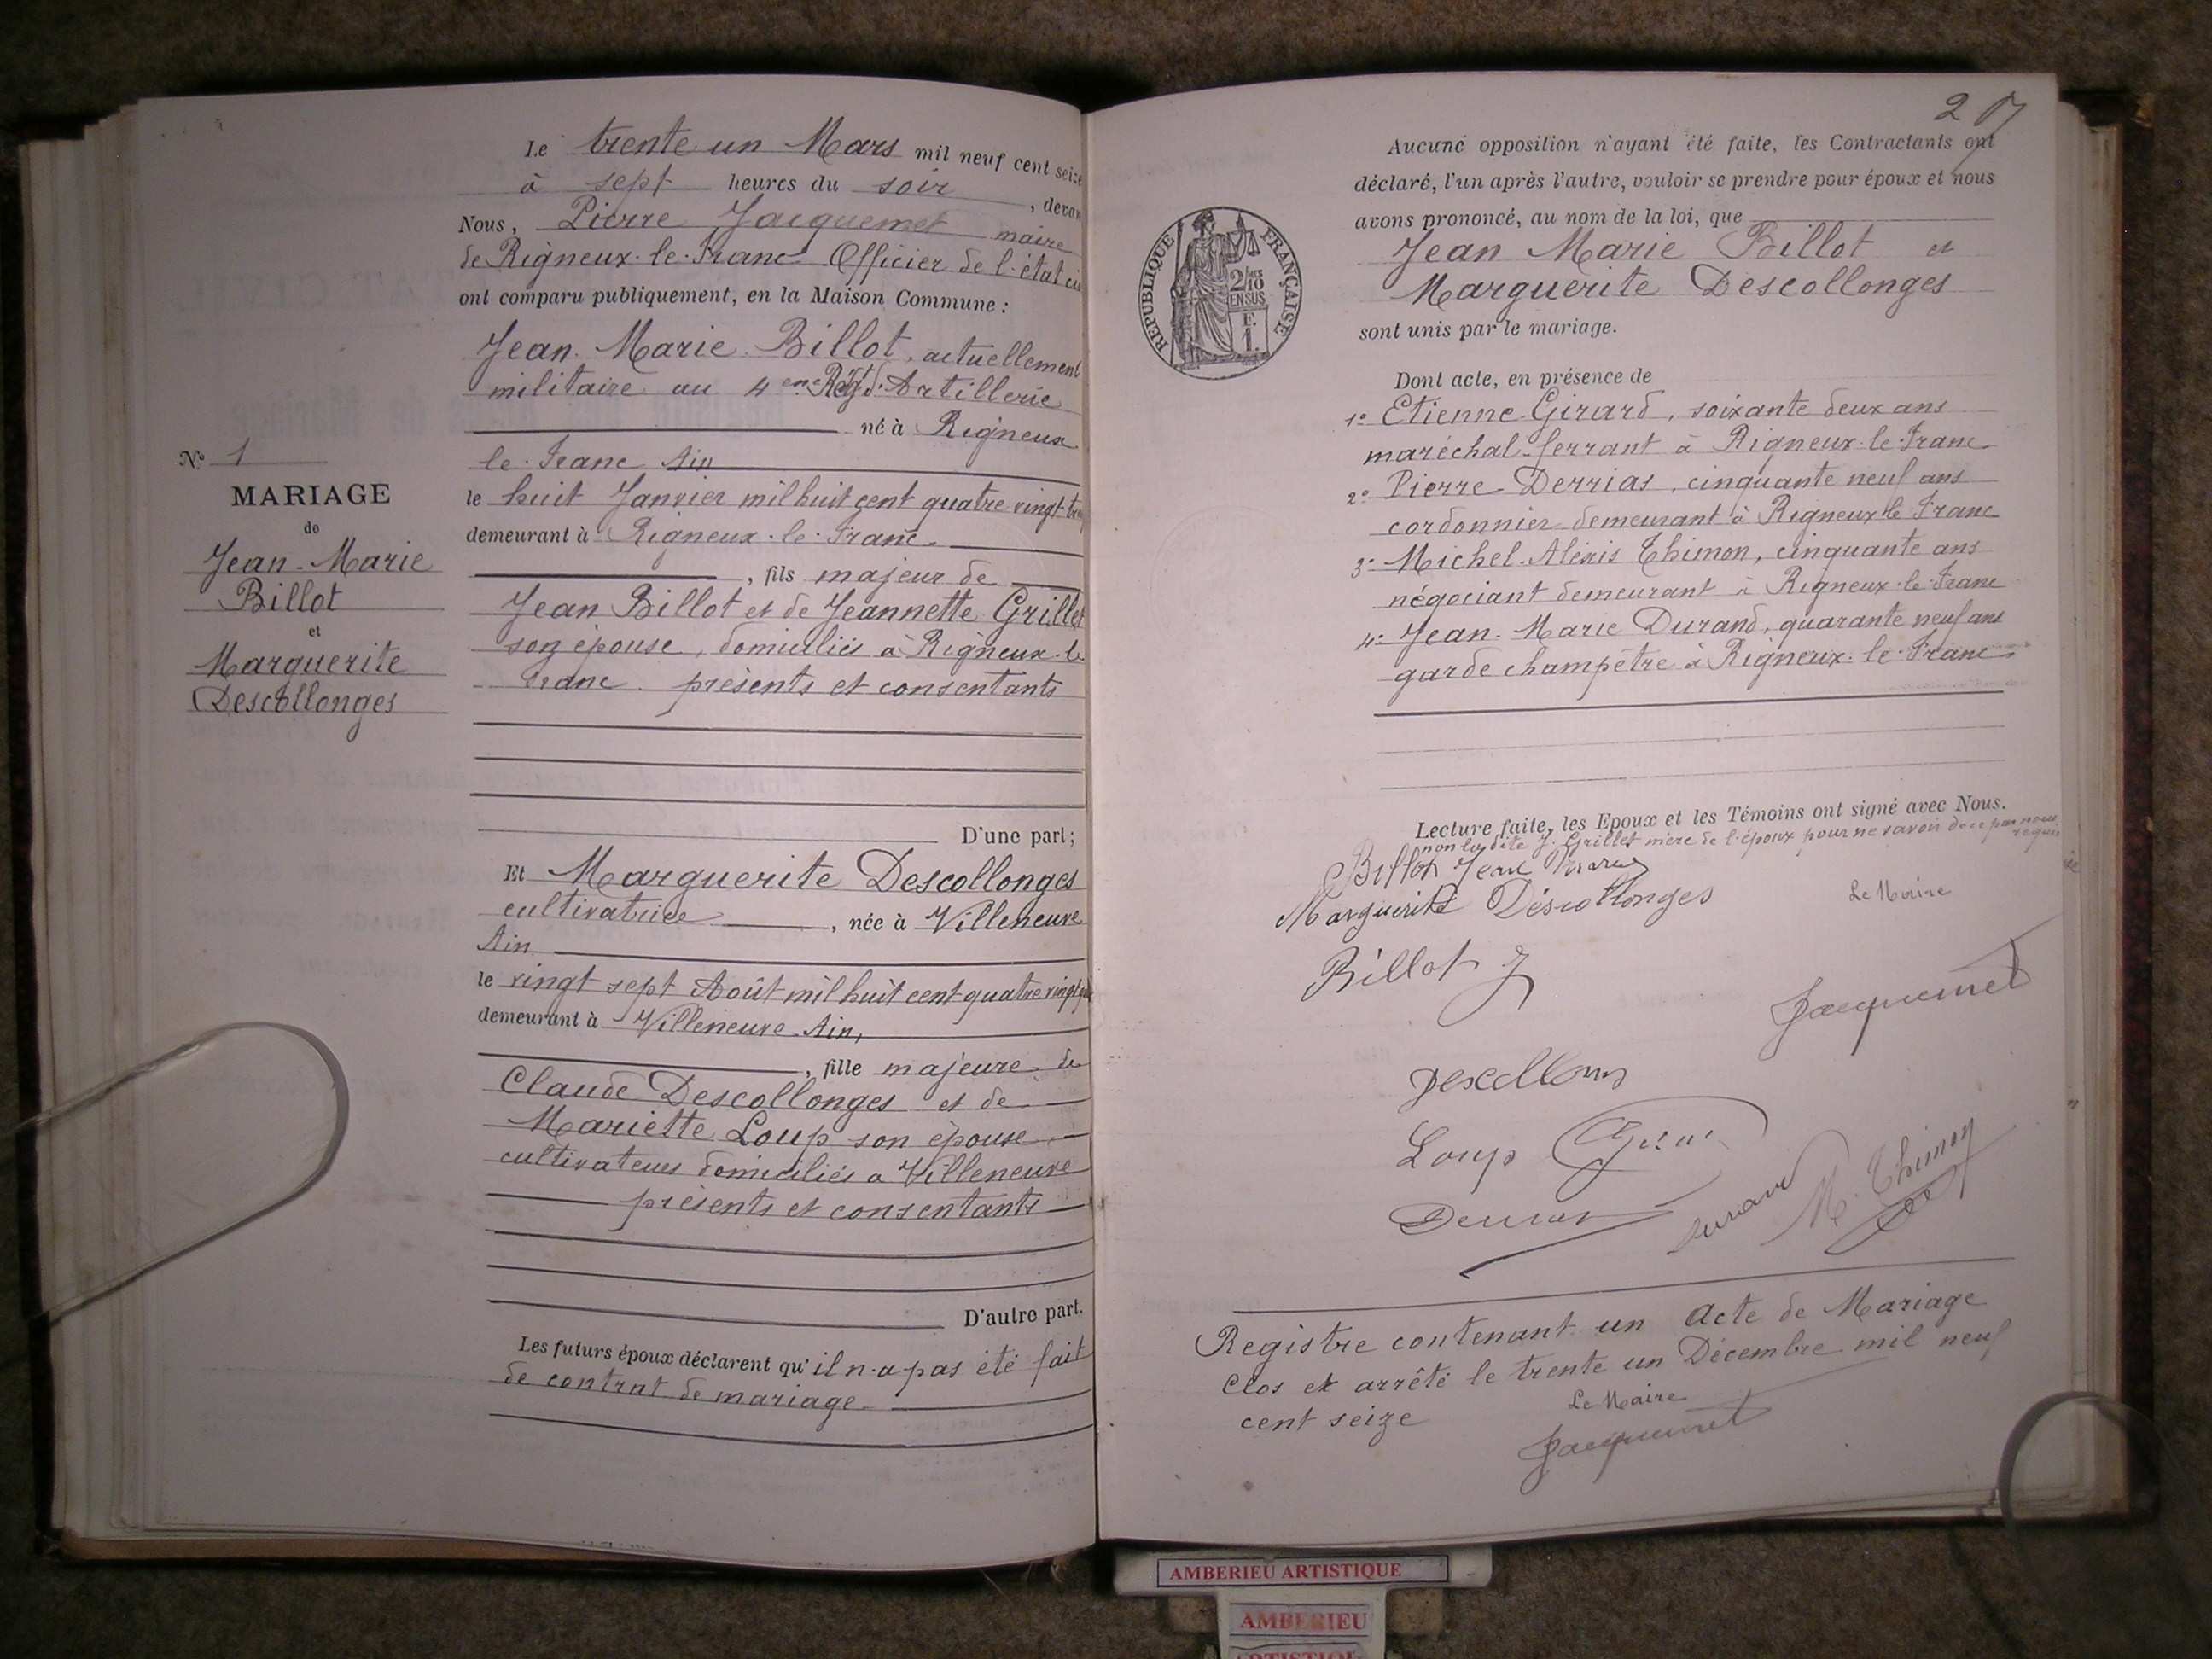 Le trente un Mars mil neuf cent seize
à sept heures du soir, devan
Nous, Pierre Jacquemet maire
de Rigneux-le-Franc Officier de l'état ci
ont comparu publiquement, en la Maison Commune :
Jean Marie Billot, actuellement
militaire au 4eme Regt d'Artillerie
né à Rigneux
le Franc Ain
le huit Janvier mil huit cent quatre vingt
demeurant à Rigneux-le-Franc
, fils majeur de
Jean Billot et de Jeannette Grillet
son épouse, domiciliés à Rigneux-le
Franc présents et consentants
D'une part;
Nº 1
MARIAGE
de
Jean-Marie
Billot
et
Marguerite
Descollonges
Et Marguerite Descollonges
cultivatrice, née à Villeneuve
Ain
le vingt sept Août mil huit cent quatre vingt
demeurant à Villeneuve Ain,
, fille majeure de
Claude Descollonges et de
Mariette Loup son épouse
cultivateurs domiciliés à Villeneuve
présents et consentants
D'autre part.
Les futurs époux déclarent qu'il n'a pas été fait
de contrat de mariage
2
Aucune opposition n'ayant été faite, les Contractants ont
déclaré, l'un après l'autre, vouloir se prendre pour époux et nous
avons prononcé, au nom de la loi, que
Jean Marie Billot et
Marguerite Descollonges
sont unis par le mariage.
RÉPUBLIQUE FRANÇAISE
2/10
EN SUS
F.
1.
Dont acte, en présence de
1º Etienne Girard, soixante deux ans
maréchal-ferrant à Rigneux-le-Franc
2º Pierre Derrias, cinquante neuf ans
cordonnier demeurant à Rigneux le Franc
3º Michel Alexis Thimon, cinquante ans
négociant demeurant à Rigneux-le-Franc
4º Jean-Marie Durand, quarante neuf ans
garde champêtre à Rigneux-le-Franc
Lecture faite, les Epoux et les Témoins ont signé avec Nous.
non la dite J. Grillet mère de l'époux pour ne savoir de ce par nous
requis
Billot Jean Marie
Marguerite Déscollonges
Le Maire
Billot J
Jacquemet
Loup
Durand
M. Thimon
Registre contenant un Acte de Mariage
Clos et arrêté le trente un Décembre mil neuf
cent seize
Le Maire
Jacquemet
AMBERIEU ARTISTIQUE
AMBERIEU
ARTISTIQUE